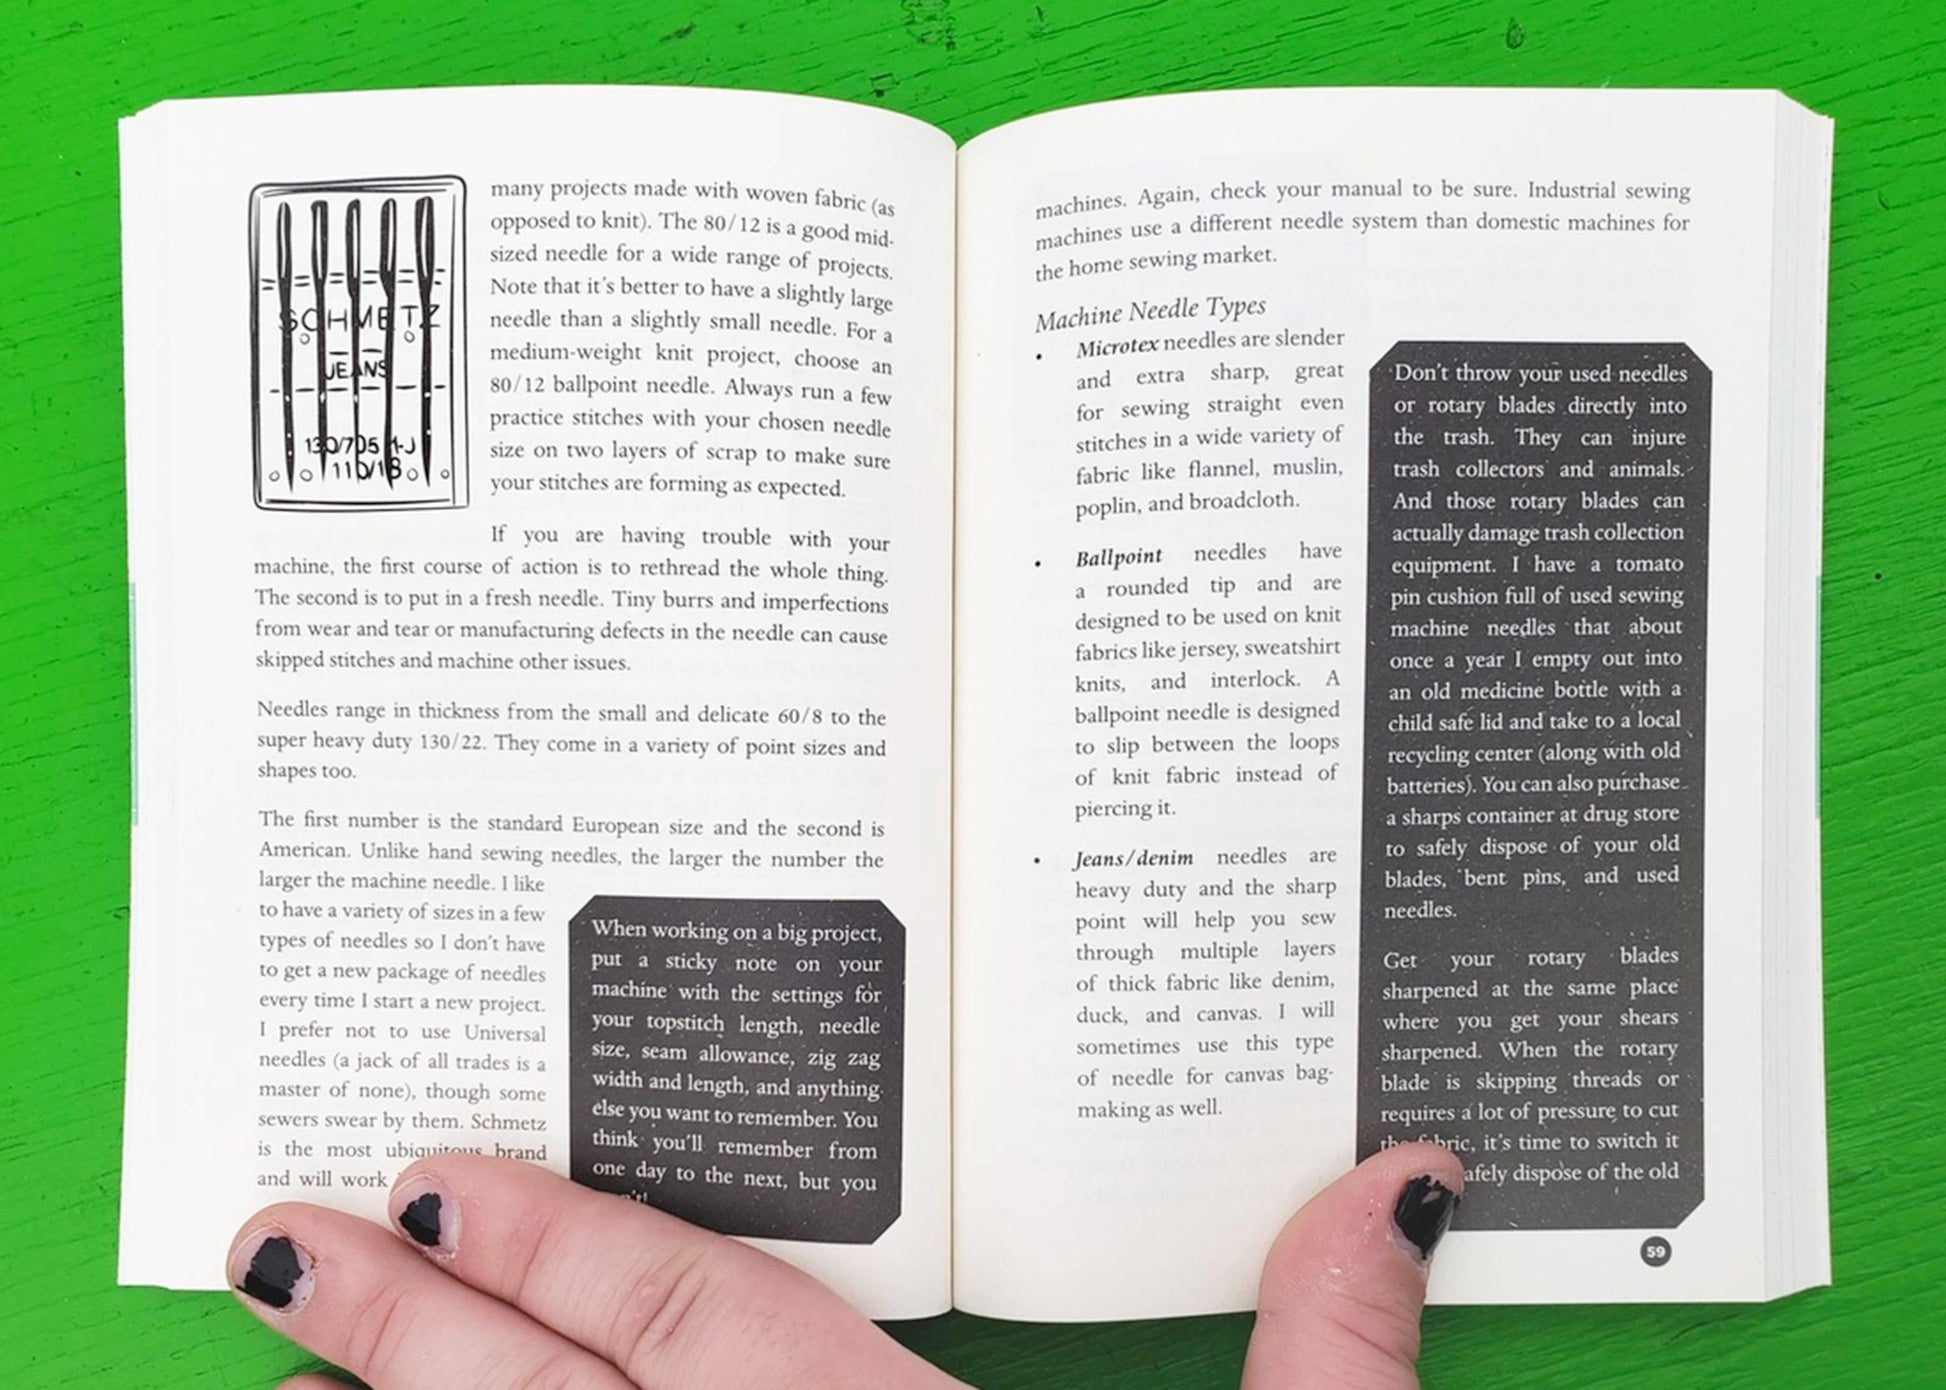 SCHMETZ
JEANS
130/705 H-J
110/18
many projects made with woven fabric (as
opposed to knit). The 80/12 is a good mid-
sized needle for a wide range of projects.
Note that it's better to have a slightly large
needle than a slightly small needle. For a
medium-weight knit project, choose an
80/12 ballpoint needle. Always run a few
practice stitches with your chosen needle
size on two layers of scrap to make sure
your stitches are forming as expected.
If you are having trouble with your
machine, the first course of action is to rethread the whole thing.
The second is to put in a fresh needle. Tiny burrs and imperfections
from wear and tear or manufacturing defects in the needle can cause
skipped stitches and machine other issues.
Needles range in thickness from the small and delicate 60/8 to the
super heavy duty 130/22. They come in a variety of point sizes and
shapes too.
The first number is the standard European size and the second is
American. Unlike hand sewing needles, the larger the number the
larger the machine needle. I like
to have a variety of sizes in a few
types of needles so I don't have
to get a new package of needles
every time I start a new project.
I prefer not to use Universal
needles (a jack of all trades is a
master of none), though some
sewers swear by them. Schmetz
is the most ubiquitous brand
and will work
When working on a big project,
put a sticky note on your
machine with the settings for
your topstitch length, needle
size, seam allowance, zig zag
width and length, and anything
else you want to remember. You
think you'll remember from
one day to the next, but you
machines. Again, check your manual to be sure. Industrial sewing
machines use a different needle system than domestic machines for
the home sewing market.
Machine Needle Types
• Microtex needles are slender
and extra sharp, great
for sewing straight even
stitches in a wide variety of
fabric like flannel, muslin,
poplin, and broadcloth.
• Ballpoint needles have
a rounded tip and are
designed to be used on knit
fabrics like jersey, sweatshirt
knits, and interlock. A
ballpoint needle is designed
to slip between the loops
of knit fabric instead of
piercing it.
• Jeans/denim needles are
heavy duty and the sharp
point will help you sew
through multiple layers
of thick fabric like denim,
duck, and canvas. I will
sometimes use this type
of needle for canvas bag-
making as well.
Don't throw your used needles
or rotary blades directly into
the trash. They can injure
trash collectors and animals.
And those rotary blades can
actually damage trash collection
equipment. I have a tomato
pin cushion full of used sewing
machine needles that about
once a year I empty out into
an old medicine bottle with a
child safe lid and take to a local
recycling center (along with old
batteries). You can also purchase
a sharps container at drug store
to safely dispose of your old
blades, bent pins, and used
needles.
Get your rotary blades
sharpened at the same place
where you get your shears
sharpened. When the rotary
blade is skipping threads or
requires a lot of pressure to cut
the fabric, it's time to switch it
safely dispose of the old
59